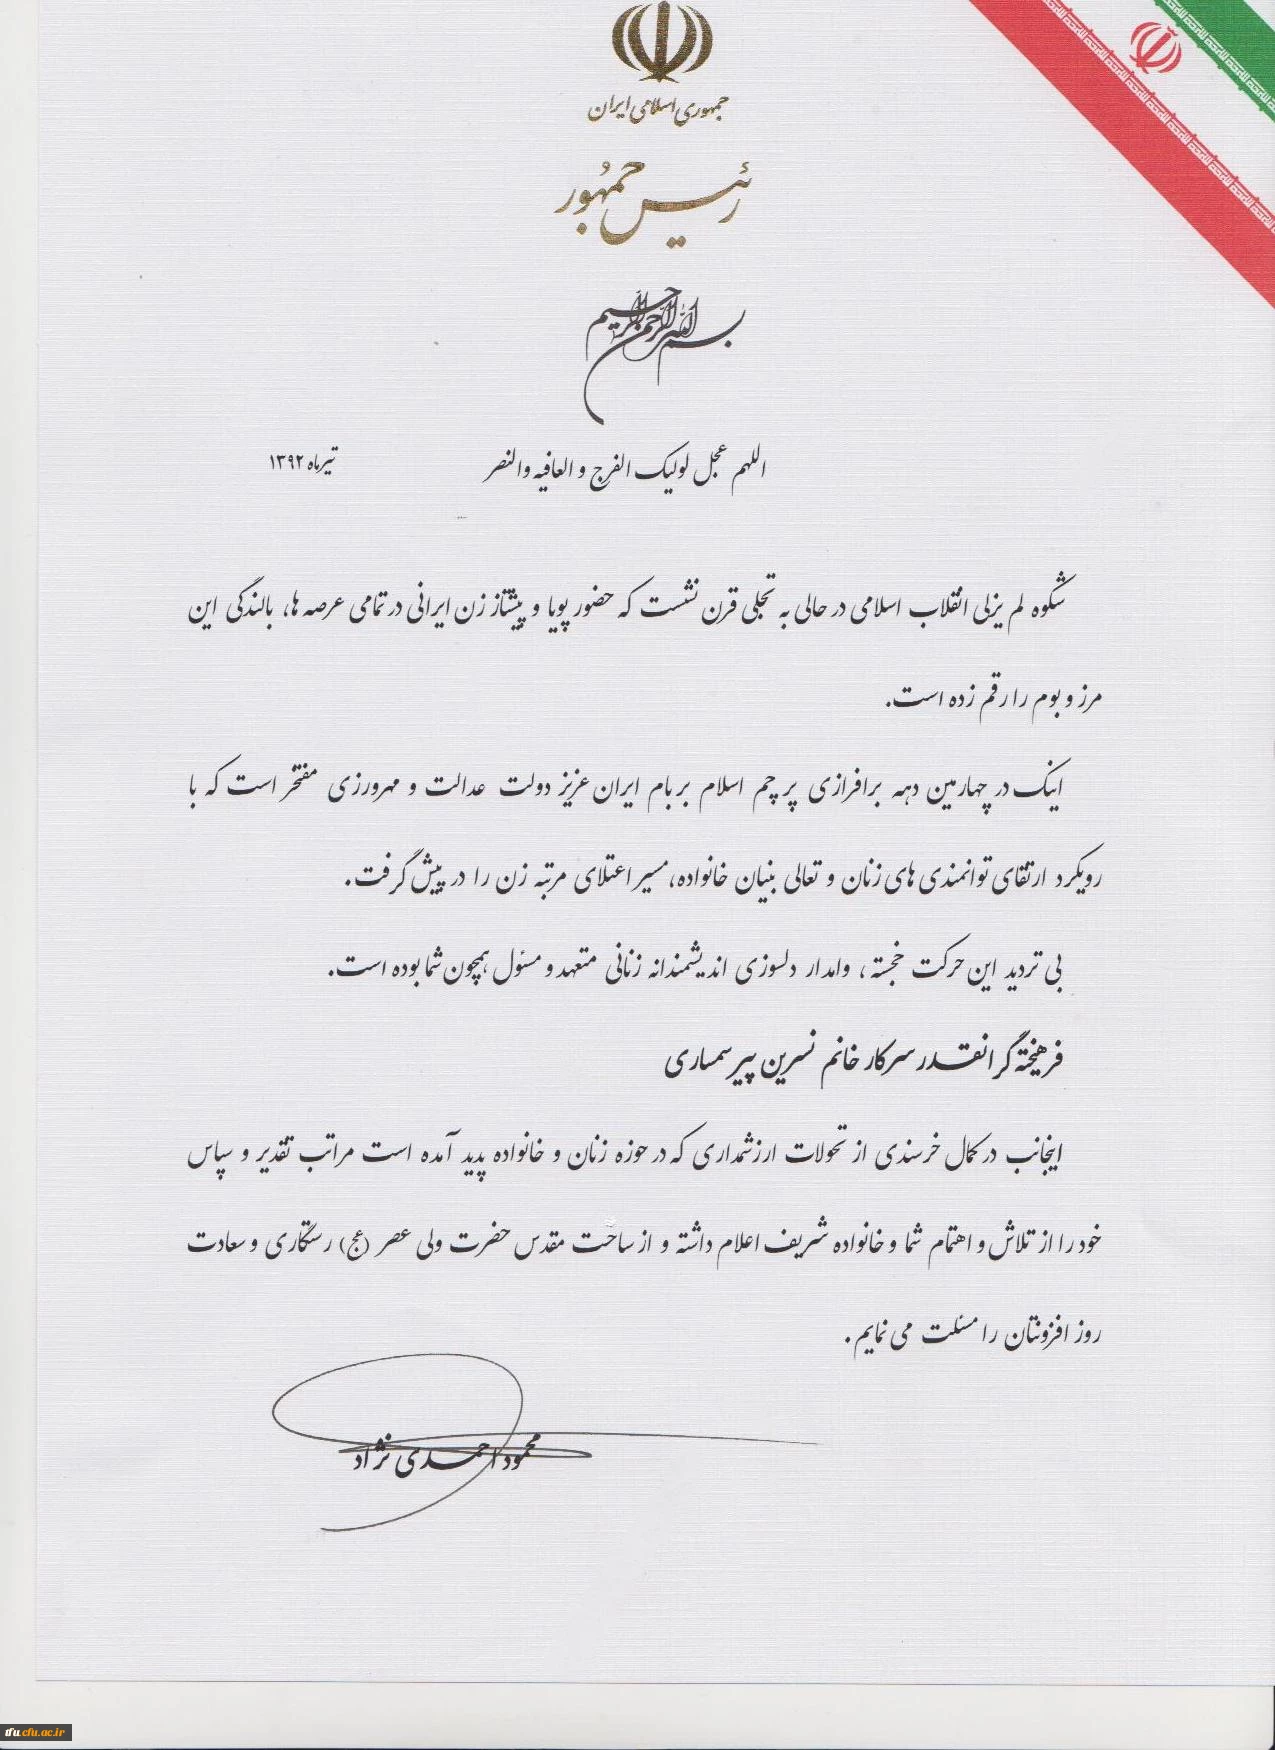 جمهوری اسلامی ایران
رئیس جمهور
بسم الله الرحمن الرحیم
اللهم عجل لولیک الفرج و العافیه والنصر
تیرماه ۱۳۹۲
شکوه لم یزلی انقلاب اسلامی در حالی به تجلی قرن نشست که حضور پویا و پیشتاز زن ایرانی در تمامی عرصه ها، بالندگی این
مرز و بوم را رقم زده است.
اینک در چهارمین دهه برافرازی پرچم اسلام بر بام ایران عزیز دولت عدالت و مهرورزی مفتخر است که با
رویکرد ارتقای توانمندی های زنان و تعالی بنیان خانواده، مسیر اعتلای مرتبه زن را در پیش گرفت.
بی تردید این حرکت خجسته، وامدار دلسوزی اندیشمندانه زنانی متعهد و مسئول همچون شما بوده است.
فرهیخته گرانقدر سرکار خانم نسرین پیرسمساری
اینجانب در کمال خرسندی از تحولات ارزشمداری که در حوزه زنان و خانواده پدید آمده است مراتب تقدیر و سپاس
خود را از تلاش و اهتمام شما و خانواده شریف اعلام داشته و از ساحت مقدس حضرت ولی عصر (عج) رستگاری و سعادت
روز افزونتان را مسئلت می نمایم.
محمود احمدی نژاد
tfu.cfu.ac.ir